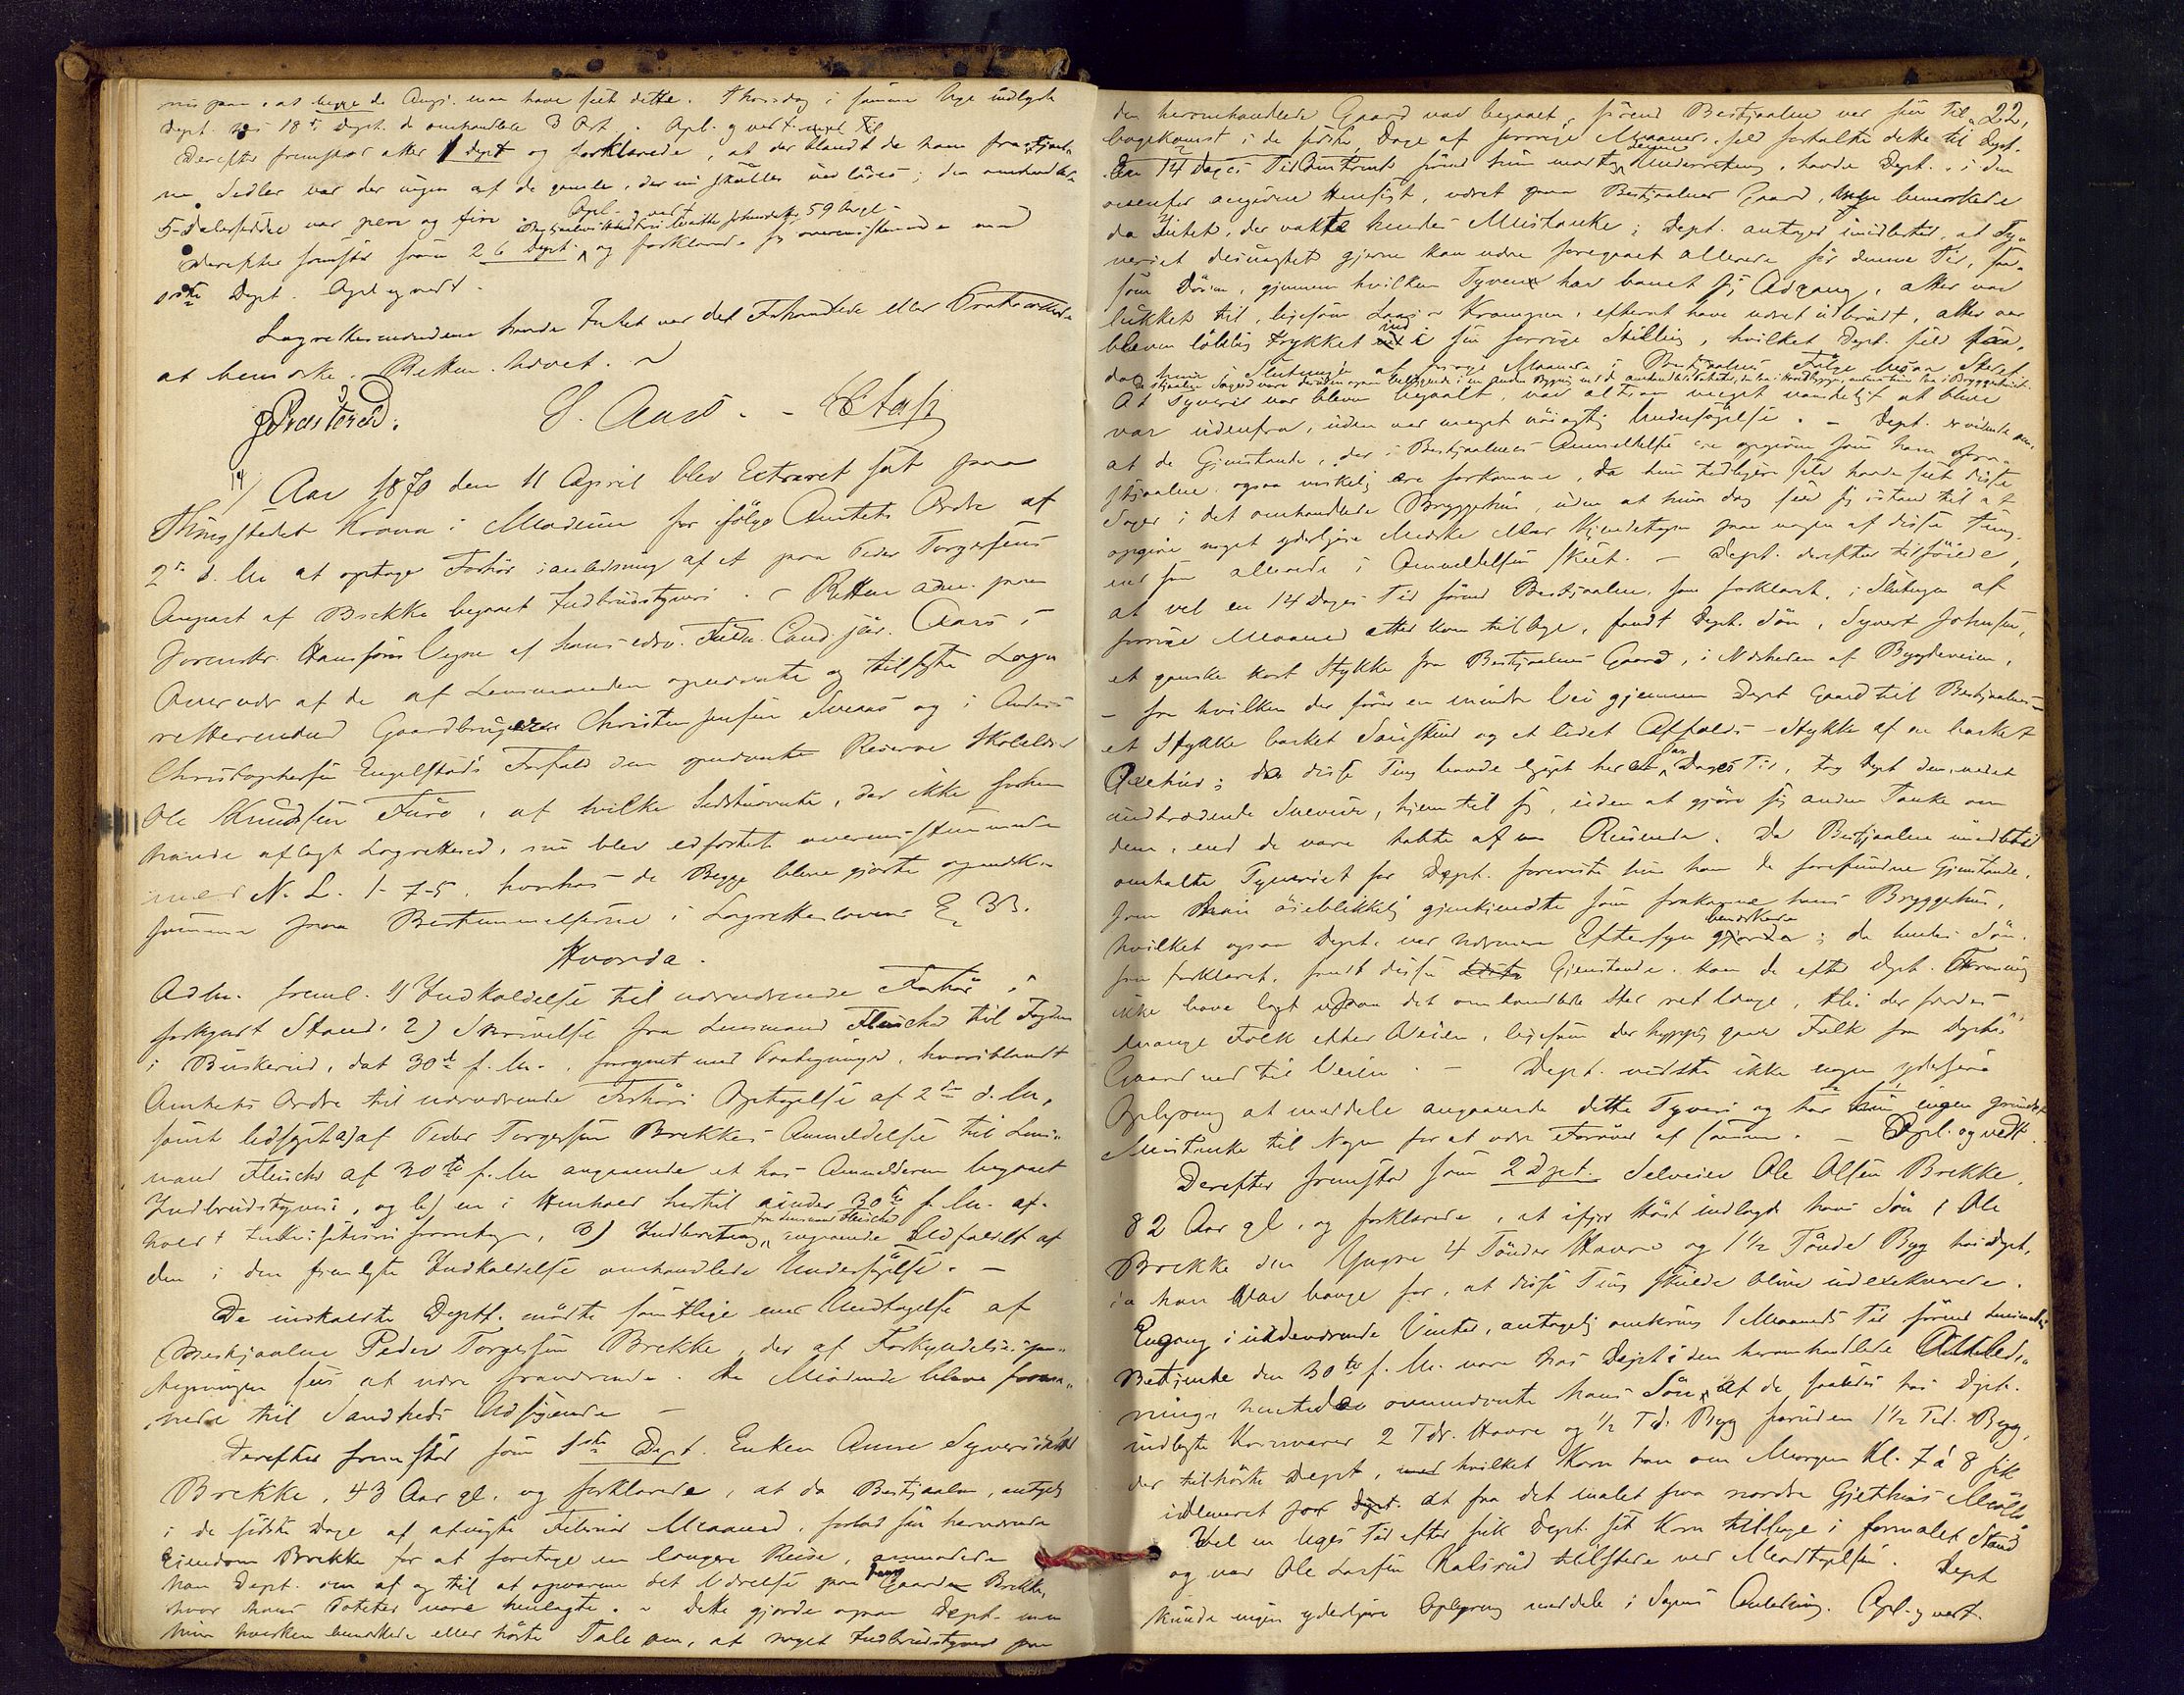 at begge de Angj. maa have seet dette. Thorsdag i samme Uge indlagde
Dept. hos 18de Dept. de omhandlede 3 Ort. Opl. og vedt.
Derefter fremstod atter 1 Dept og forklarede, at der blandt de ham frastjaal-
ne Sedler var der ingen af de gamle, der nu skulle indløses; den omhandlede
5-Dalerseddel var pen og fiin. Opl. og vedt.
Derefter fremstod som 26 Dept. og forklarede sig overensstemmende med
Dept. Opl og vedt.
Lagrettesmændene havde Intet ved det Forhandlede eller Protocollerede
at bemærke. Retten hævet.
J. Præsterud. S. Aars.
14/ Aar 1870 den 11 April blev Extraret sat paa
Thingstedet Krona i Modum for ifølge Amtets Ordre af
2den d. M. at optage Forhør i anledning af et paa Peder Torgersens
Anpart af Brekke begaaet Indbrudstyveri. - Retten adm. paa
Sorenskr. Hanssøns Vegne af hans edsv. Fuldm. Cand. jur. Aars i
Overvær af de af Lensmanden opnævnte og tilsagte Lag-
rettemænd Gaardbruger Christen Jensen Aaas og i Anders
Christophersen Engelstads Forfald den opnævnte Reserve Skolelærer
Ole Knudsen Furu, af hvilke Sidstnævnte, der ikke forhen
havde aflagt Lagretteed, nu blev edfæstet overensstemmende
med N. L. 1-7-5, hvorhos de Begge bleve gjorte opmærk-
somme paa Bestemmelserne i Lagrettelovens § 33.
Hvorda.
Adm. freml. 1) Indkaldelse til nærværende Forhør i
forkyndt Stand, 2) Skrivelse fra Lensmand Fleischer til Fogden
i Buskerud, dat 30te f. M., forsynet med Paategninger, hvoriblandt
Amtets Ordre til nærværende Forhørs Optagelse af 2den d. M.,
samt ledsaget a) af Peder Torgersen Brekkes Anmeldelse til Lens-
mand Fleischer af 30te f. M. angaaende et hos Anmelderen begaaet
Indbrudstyveri, og b) en i Henhold hertil under 30te f. M. af-
holdt Inkvisitionsforretning, 3) Indberetning fra Lensmand Fleischer angaaende Udfaldet af
den i den fremlagte Indkaldelse omhandlede Undersøgelse. -
De indkaldte Deptt. mødte samtlige med Undtagelse af
Bestjaalne Peder Torgersen Brekke, der af Forkyndelsespa-
tegningen sees at være fraværende. De Mødende bleve forma-
nede til Sandheds Udsigende -
Derefter fremstod som 1ste Dept. Enken Anne Syversdatter
Brekke, 43 Aar gl. og forklarede, at da Bestjaalne, antagelig
i de sidste Dage af afvigte Februar Maaned, forlod sin herværende
Eiendom Brekke for at foretage en længere Reise, anmodede
han Dept. om af og til at opvarme det Værelse paa Gaarden Brekke,
hvor hans Poteter vare henlagte. - Dette gjorde ogsaa Dept. men
hun hverken bemærkede eller hørte Tale om, at noget Indbrudstyveri paa
22.
den heromhandlede Gaard var begaaet, førend Bestjaalne ved sin Til-
bagekomst i de sidste Dage af forrige Maaned selv fortalte dette til Dept.
En 14 Dages Tid omtrent førend hun modtog denne Underretning, havde Dept., i den
ovenfor angivne Hensigt, været paa Bestjaalnes Gaard, men bemærkede
da Intet, der vakte hendes Mistanke; Dept. antager imidlertid, at Ty-
veriet desuagtet gjerne kan være foregaaet allerede før denne Tid, saa-
som Døren, gjennem hvilken Tyven har banet sig Adgang, atter var
lukket til, ligesom Laasen Krampen, efterat have været udbrudt, atter var
bleven løselig trykket ind i sin forrige Stilling, hvilket Dept. selv saa,
da hun i Slutningen af forrige Maaned i Bestjaalnes Følge besaa Stedet
At Tyveriet var bleven begaaet, var altsaa meget vanskeligt at blive
var udenfra, uden ved meget nøiagtig Undersøgelse. - Dept. er vidende om,
at de Gjenstande, der i Bestjaalnes Anmeldelse ere opgivne som ham fra-
stjaalne ogsaa virkelig ere forkomne, da hun tidligere selv havde seet disse
Sager i det omhandlede Bryggehus, uden at hun dog seer sig istand til at
opgive noget yderligere Mærke eller Kjendetegn paa nogen af disse Ting,
end som allerede i Anmeldelsen skeet. - Dept. derefter tilføiede,
at vel en 14 Dages Tid førend Bestjaalne, som forklaret, i Slutningen af
forrige Maaned atter kom tilbage, fandt Dept. Søn, Syvert Johnsen,
et ganske kort Stykke fra Bestjaalnes Gaard, i Nærheden af Bygdeveien,
- fra hvilken der fører en mindre Vei gjennem Dept Gaard til Bestjaalnes -
et Stykke barket Saueskind og et lidet Affalds-Stykke af en barket
Oxehud; da disse Ting havde ligget her et Par Dages Tid, tog Dept dem, ved et
indtrædende Sneveir, hjem til sig, uden at gjøre sig anden Tanke om
dem, end de vare tabte af en Reisende. Da Bestjaalne imidlertid
omtalte Tyveriet for Dept. foreviste hun ham de forefundne Gjenstande,
som han øieblikkelig gjenkjendte som frakomne hans Bryggehus,
hvilket ogsaa Dept. ved nærmere Eftersyn bemærkede; da hendes Søn,
som forklaret, fandt disse Gjenstande kan de efter Dept. Formening
ikke have lagt paa det omhandlede Sted ret længe, thi der færdes
mange Folk efter Veien, ligesom der hyppig gaaer Folk fra Depts
Gaard ned til Veien. - Dept. vidste ikke nogen yderligere
Oplysning at meddele angaaende dette Tyveri og har ingen grundet
Mistanke til Nogen for at være Forøver af samme. - Opl. og vedt.
Derefter fremstod som 2 Dpt. Selveier Ole Olsen Brekke,
82 Aar gl. og forklarede, at ifjor Høst indlagde hans Søn, Ole
Brekke den Yngre 4 Tønder Havre og 1½ Tønde Byg hos Dept,
da han var bange for, at disse Ting skulde blive udexekverede.
Engang i indeværende Vinter, antagelig omkring 1 Maaneds Tid førend Lensmandens
Betjente den 30te f. M. vare hos Dept i den heromhandlede Anled-
ning, hentede ovennævnte hans Søn af de saaledes hos Dept.
indlagte Kornvarer 2 Tdr. Havre og ½ Td. Byg foruden 1½ Td. Byg,
der tilhørte Dept, hvilket Korn han om Morgen Kl. 7 à 8 fik
udleveret for at faa det malet paa nordre Gjethus Mølle
Vel en Uges Tid efter fik Dept. sit Korn tilbage i formalet Stand
og var Ole Larsen Kalsrud tilstede ved Modtagelsen. Dept
kunde ingen yderligere Oplysning meddele i Sagens Anledning. Opl. og vedt.